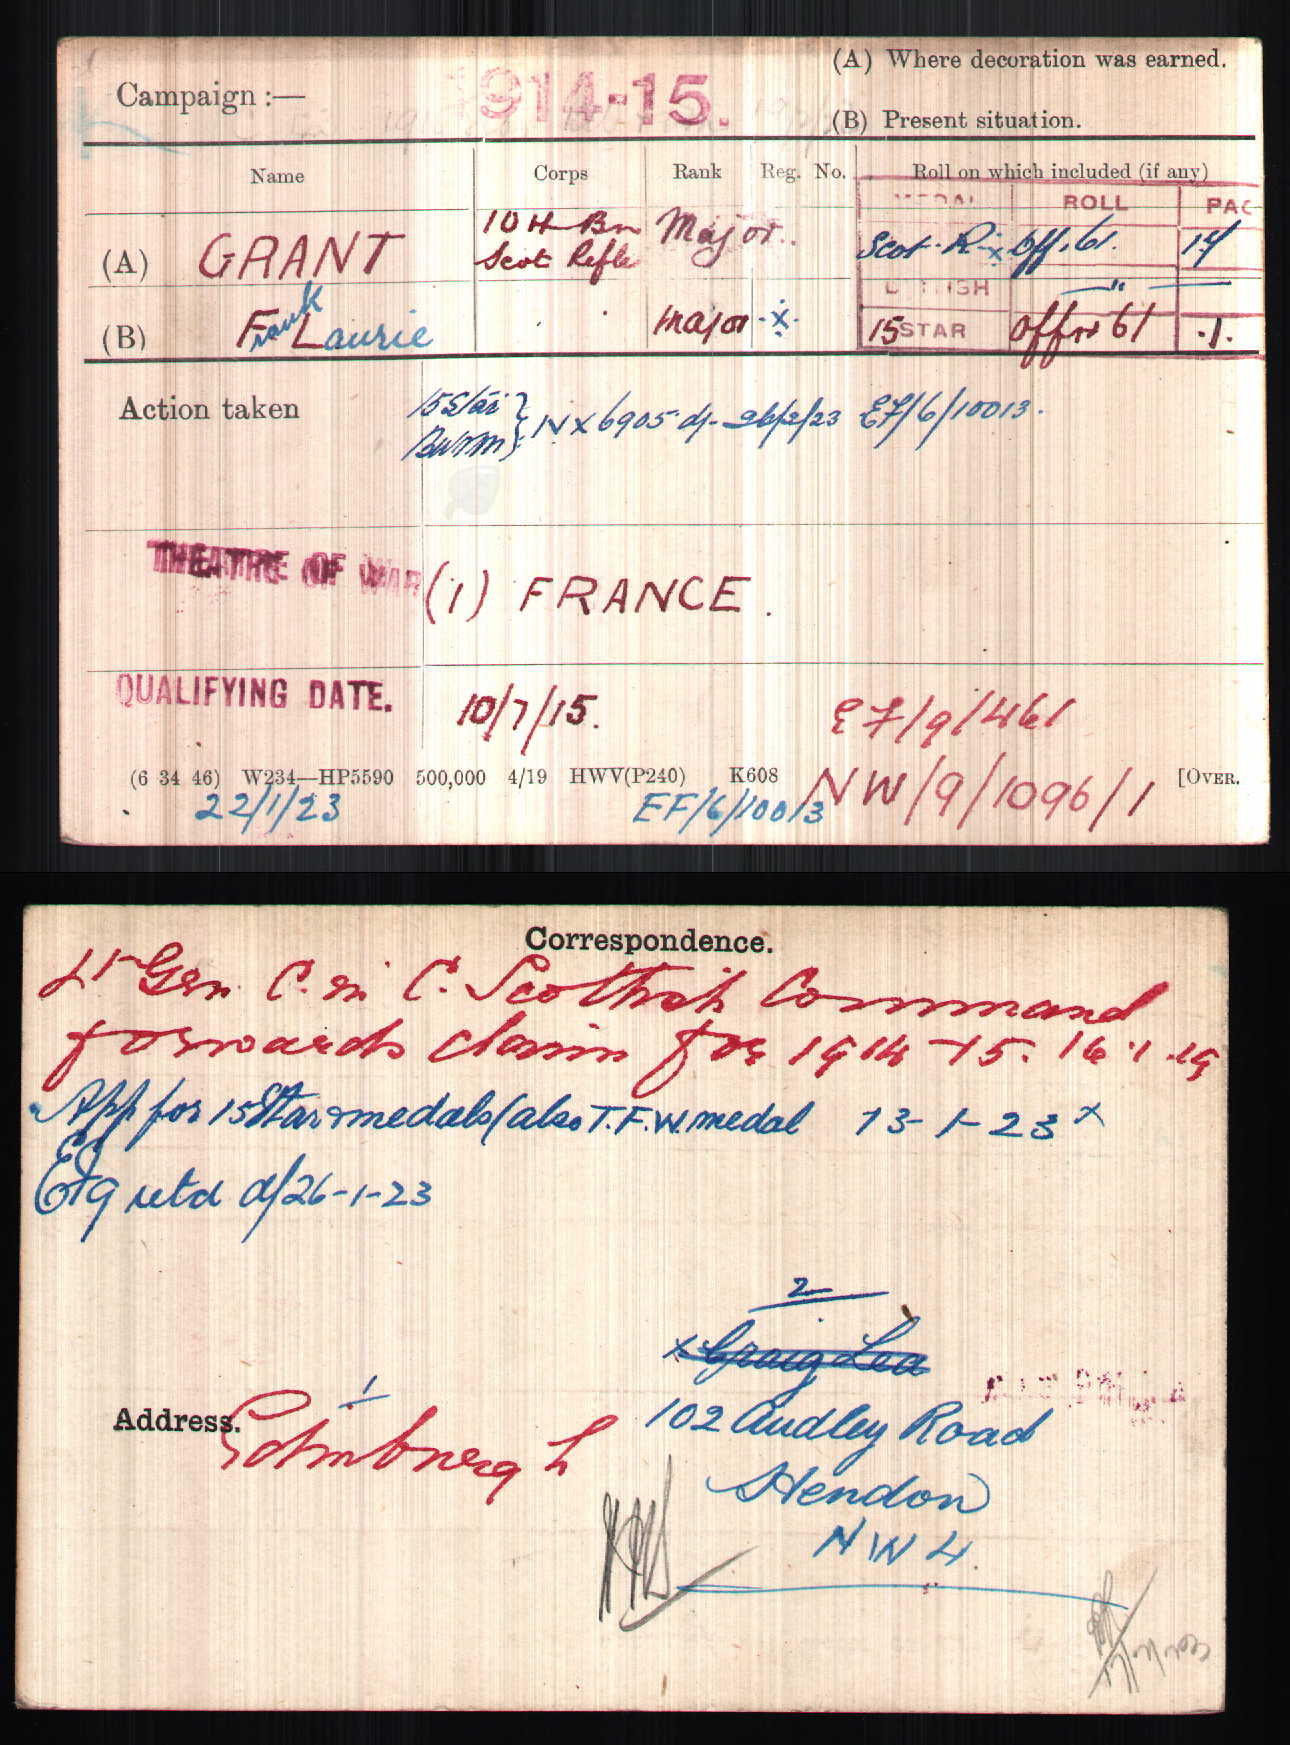 (A) Where decoration was earned.
Campaign :— 1914-15.
(B) Present situation.
Name Corps Rank Reg. No. Roll on which included (if any)
MEDAL ROLL PAG
(A) GRANT 10th Bn Major. Scot. R. x Off. 61. 14
Scot Rifle
"
(B) Frank Laurie Major -x- 15 STAR Off 61 .1.
Action taken 15 Star } N x 6905 d/- 26/2/23 EF/6/10013.
BWM
THEATRE OF WAR (1) FRANCE.
QUALIFYING DATE. 10/7/15.
EF/9/461
(6 34 46) W234—HP5590 500,000 4/19 HWV(P240) K608 NW/9/1096/1 [OVER.
22/1/23 EF/6/10013
Correspondence.
Lt Gen. C. in C. Scottish Command
forwards claim for 1914-15. 16.1.19
App for 15 Star & medals (also T.F.W. medal 13-1-23 x
Ef9 retd d/26-1-23
2
x Craig Lea
1
Address. Edinburgh 102 Audley Road
Hendon
NW4.